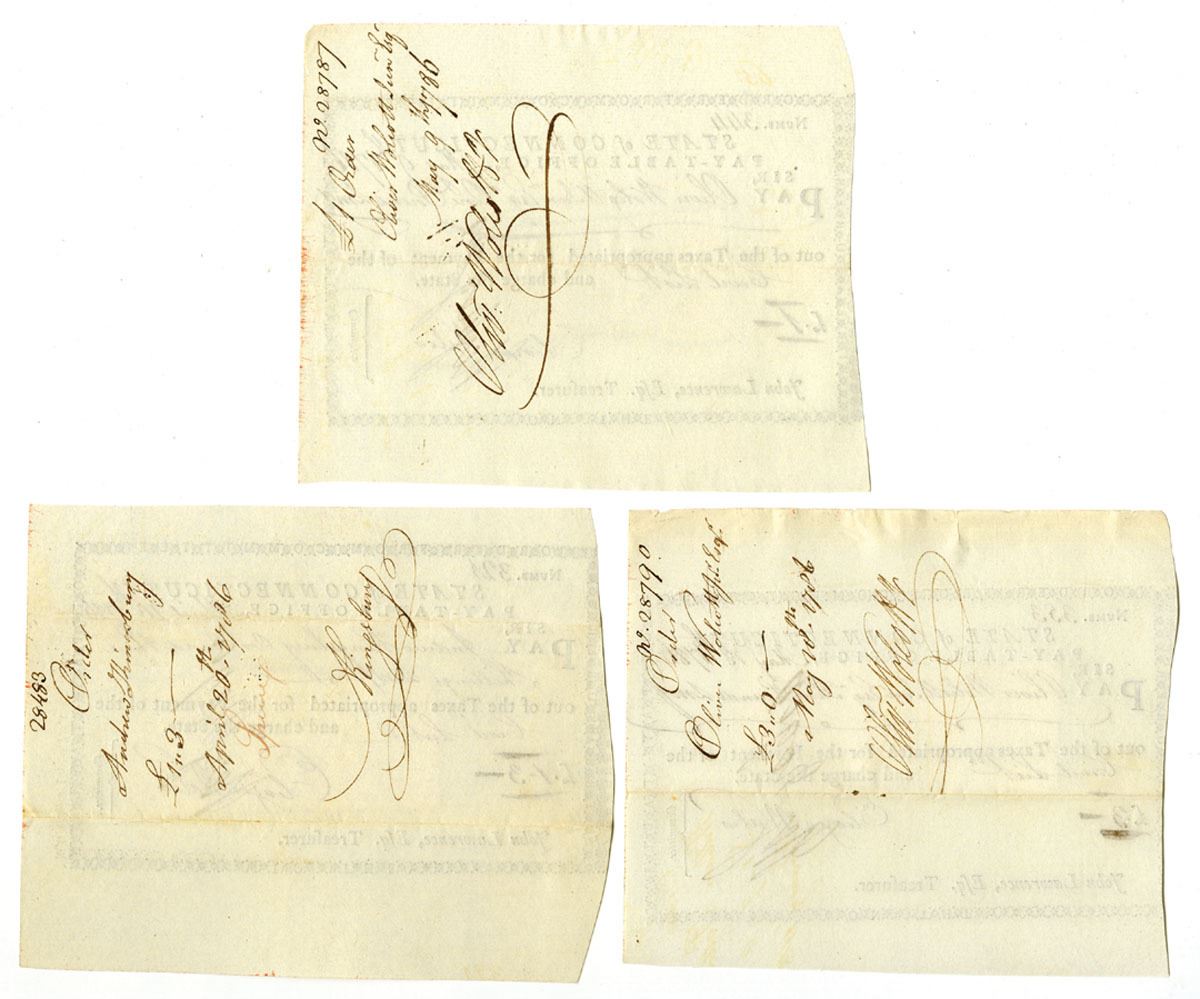 No 28787
£1 Order
Oliver Wolcott Jun Esq
May 9th 1786
Olivr. Wolcott Jr
NUMB. 344
STATE of CONNECTICUT
PAY-TABLE OFFICE
SIR,
PAY Oliver Wolcott
out of the Taxes appropriated for the Payment of the
and charge the State.
John Lawrence, Esq. Treasurer.
28483
Order
Andrew Kingsbury
£1..3
April 20th. 1786
Kingsbury
NUMB. 329
STATE of CONNECTICUT
PAY-TABLE OFFICE,
SIR,
PAY Andrew Kingsbury
out of the Taxes appropriated for the Payment of the
and charge the State
£.1.3
John Lawrence, Esq. Treasurer.
No 28790
Order
Oliver Wolcott Jur. Esqr.
£3..0
May 10th. 1786
Olivr. Wolcott Jr
NUMB. 353
STATE of CONNECTICUT
PAY-TABLE OFFICE
SIR
PAY Oliver Wolcott
out of the Taxes appropriated for the Payment of the
and charge the State.
£3
John Lawrence, Esq. Treasurer.